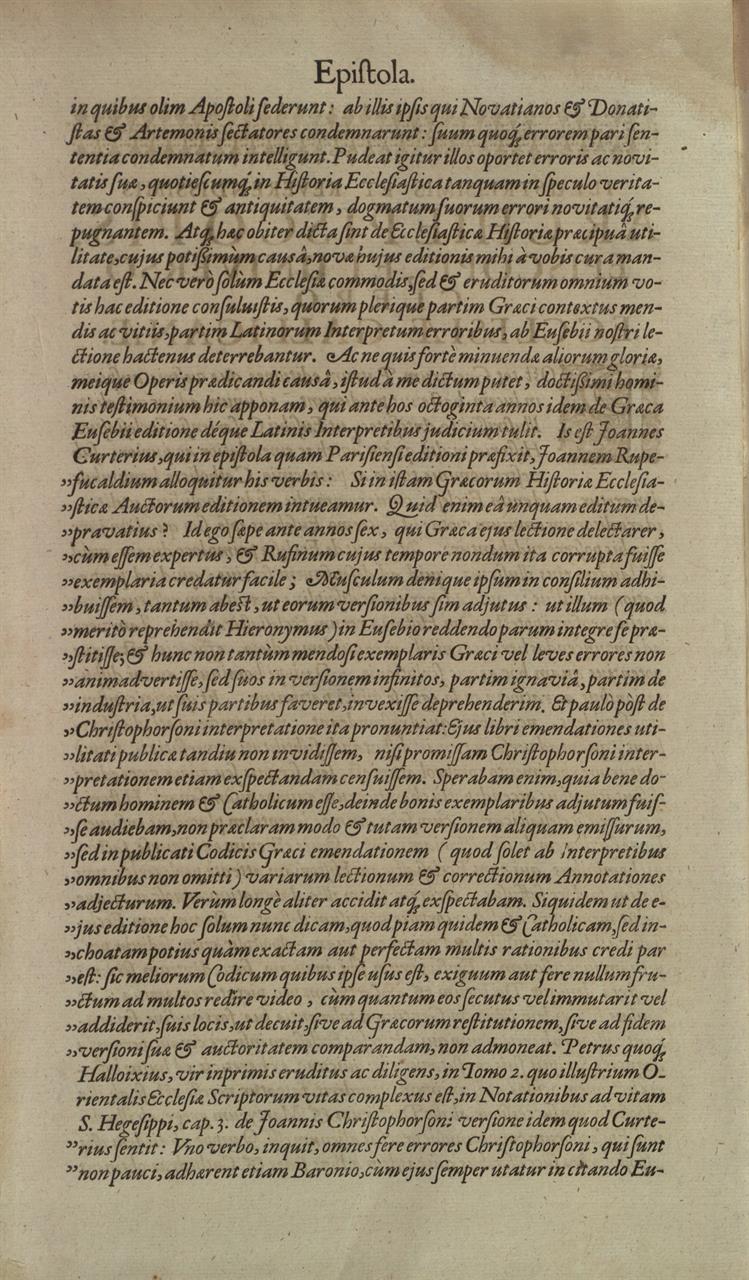 Epiſtola.
in quibus olim Apoſtoli ſederunt: ab illis ipſis qui Novatianos & Donati-
ſtas & Artemonis ſectatores condemnarunt: ſuum quoq́, errorem pari ſen-
tentia condemnatum intelligunt. Pudeat igitur illos oportet erroris ac novi-
tatis ſuæ, quotieſcumq́, in Hiſtoria Eccleſiaſtica tanquam in ſpeculo verita-
tem conſpiciunt & antiquitatem, dogmatum ſuorum errori novitatiq́, re-
pugnantem. Atq́, hæc obiter dicta ſint de Eccleſiaſticæ Hiſtoriæ præcipuâ uti-
litate, cujus potiſſimùm causâ, nova hujus editionis mihi à vobis cura man-
data eſt. Nec verò ſolùm Eccleſiæ commodis, ſed & eruditorum omnium vo-
tis hac editione conſuluiſtis, quorum plerique partim Græci contextus men-
dis ac vitiis, partim Latinorum Interpretum erroribus, ab Euſebii noſtri le-
ctione hactenus deterrebantur. Ac ne quis fortè minuendæ aliorum gloriæ,
meique Operis prædicandi causâ, iſtud à me dictum putet, doctiſſimi homi-
nis teſtimonium hic apponam, qui ante hos octoginta annos idem de Græca
Euſebii editione déque Latinis Interpretibus judicium tulit. Is eſt Joannes
Curterius, qui in epiſtola quam Pariſienſi editioni præfixit, Joannem Rupe-
„fucaldium alloquitur his verbis: Si in iſtam Græcorum Hiſtoriæ Eccleſia-
„ſticæ Auctorum editionem intueamur. Quid enim eâ unquam editum de-
„pravatius? Id ego ſæpe ante annos ſex, qui Græca ejus lectione delectarer,
„cùm eſſem expertus, & Rufinum cujus tempore nondum ita corrupta fuiſſe
„exemplaria credatur facile; Muſculum denique ipſum in conſilium adhi-
„buiſſem, tantum abeſt, ut eorum verſionibus ſim adjutus: ut illum (quod
„meritò reprehendit Hieronymus) in Euſebio reddendo parum integre ſe præ-
„ſtitiſſe; & hunc non tantùm mendoſi exemplaris Græci vel leves errores non
„animadvertiſſe, ſed ſuos in verſionem infinitos, partim ignaviâ, partim de
„induſtria, ut ſuis partibus faveret, invexiſſe deprehenderim. Et paulò pòſt de
„Chriſtophorſoni interpretatione ita pronuntiat: Ejus libri emendationes uti-
„litati publicæ tandiu non invidiſſem, niſi promiſſam Chriſtophorſoni inter-
„pretationem etiam exſpectandam cenſuiſſem. Sperabam enim, quia bene do-
„ctum hominem & Catholicum eſſe, deinde bonis exemplaribus adjutum fuiſ-
„ſe audiebam, non præclaram modo & tutam verſionem aliquam emiſſurum,
„ſed in publicati Codicis Græci emendationem (quod ſolet ab Interpretibus
„omnibus non omitti) variarum lectionum & correctionum Annotationes
„adjecturum. Verùm longè aliter accidit atq́, exſpectabam. Siquidem ut de e-
„jus editione hoc ſolum nunc dicam, quod piam quidem & Catholicam, ſed in-
„choatam potius quàm exactam aut perfectam multis rationibus credi par
„eſt: ſic meliorum Codicum quibus ipſe uſus eſt, exiguum aut fere nullum fru-
„ctum ad multos redire video, cùm quantum eos ſecutus vel immutarit vel
„addiderit, ſuis locis, ut decuit, ſive ad Græcorum reſtitutionem, ſive ad fidem
„verſioni ſuæ & auctoritatem comparandam, non admoneat. Petrus quoq́,
Halloixius, vir inprimis eruditus ac diligens, in Tomo 2. quo illuſtrium O-
rientalis Eccleſiæ Scriptorum vitas complexus eſt, in Notationibus ad vitam
S. Hegeſippi, cap. 3. de Joannis Chriſtophorſoni verſione idem quod Curte-
„rius ſentit: Vno verbo, inquit, omnes fere errores Chriſtophorſoni, qui ſunt
„non pauci, adhærent etiam Baronio, cùm ejus ſemper utatur in citando Eu-